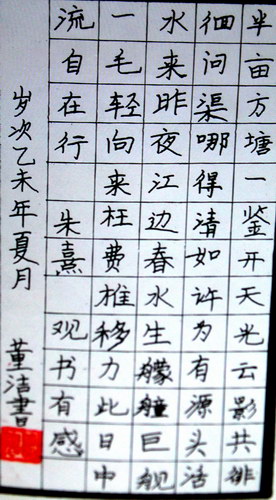 半亩方塘一鉴开天光云影共徘
徊问渠哪得清如许为有源头活
水来昨夜江边春水生艨艟巨舰
一毛轻向来枉费推移力此日中
流自在行 朱熹 观书有感
岁次乙未年夏月 董洁書